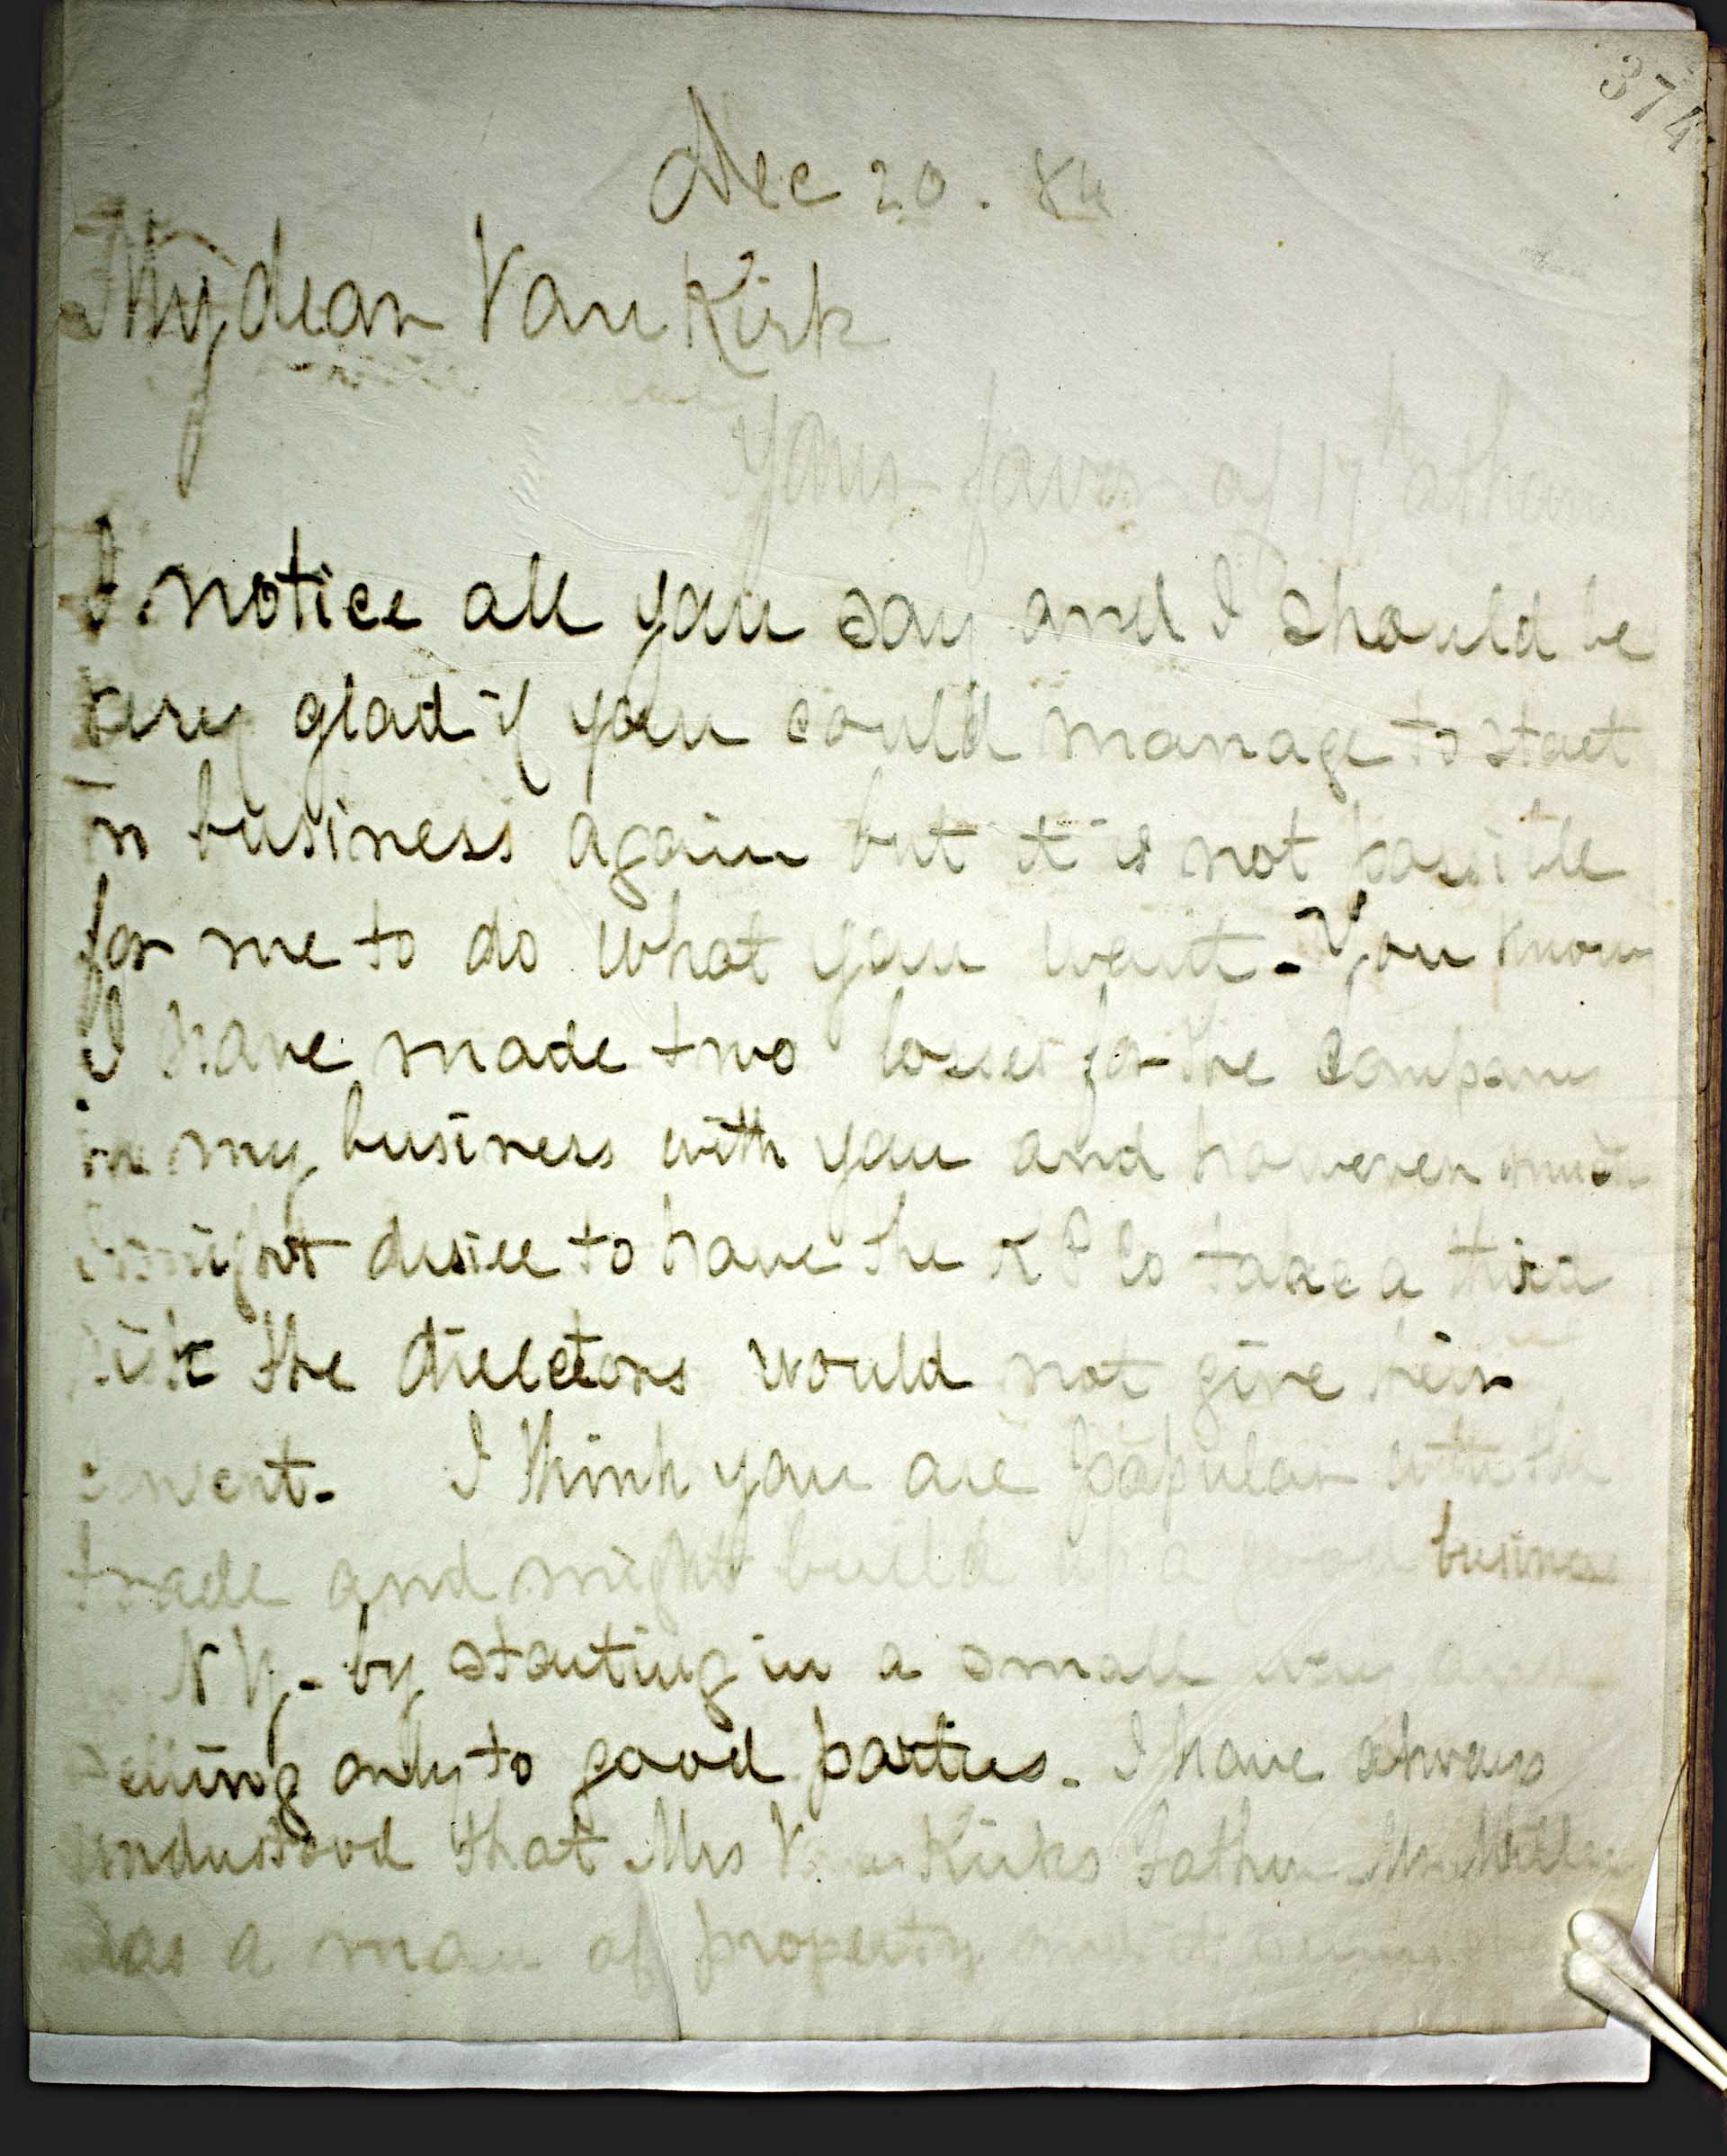 374
Dec 20. 84
My dear Van Kirk
Your favor of 17th
I notice all you say and I should be
very glad if you could manage to start
in business again but it is not possible
for me to do what you want. You know
I have made two losses for the Company
in my business with you and however much
I might desire to have the K P Co take a third
risk the directors would not give their
consent. I think you are popular with the
trade and might build up a good business
in N Y. by starting in a small way and
selling only to good parties. I have always
understood that Mrs Van Kirks Father Mr
was a man of property and it seems